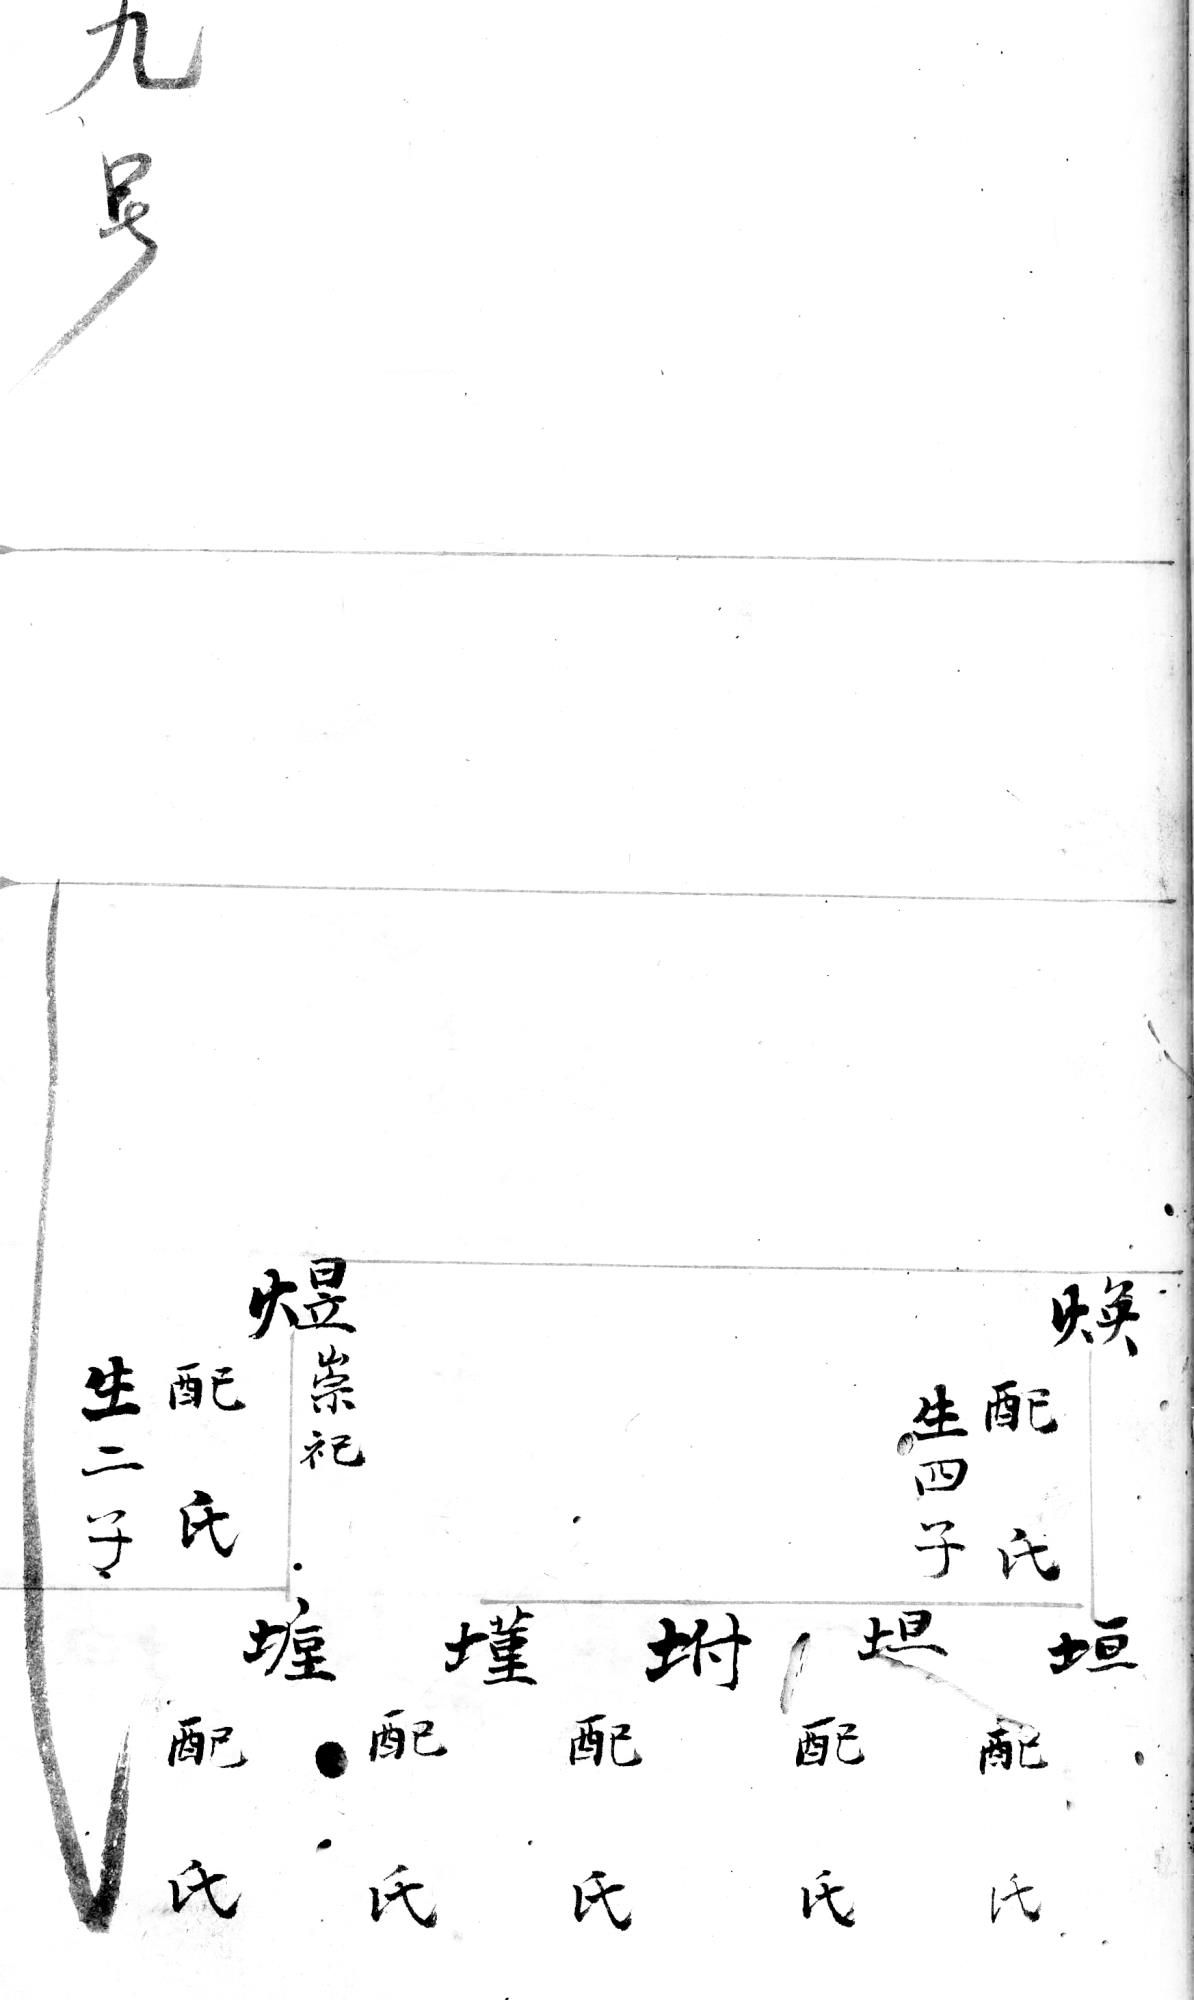 焕
配 氏
生四子
煜
崇祀
配 氏
生二子
垣
配 氏
坦
配 氏
坿
配 氏
墐
配 氏
配 氏
九号